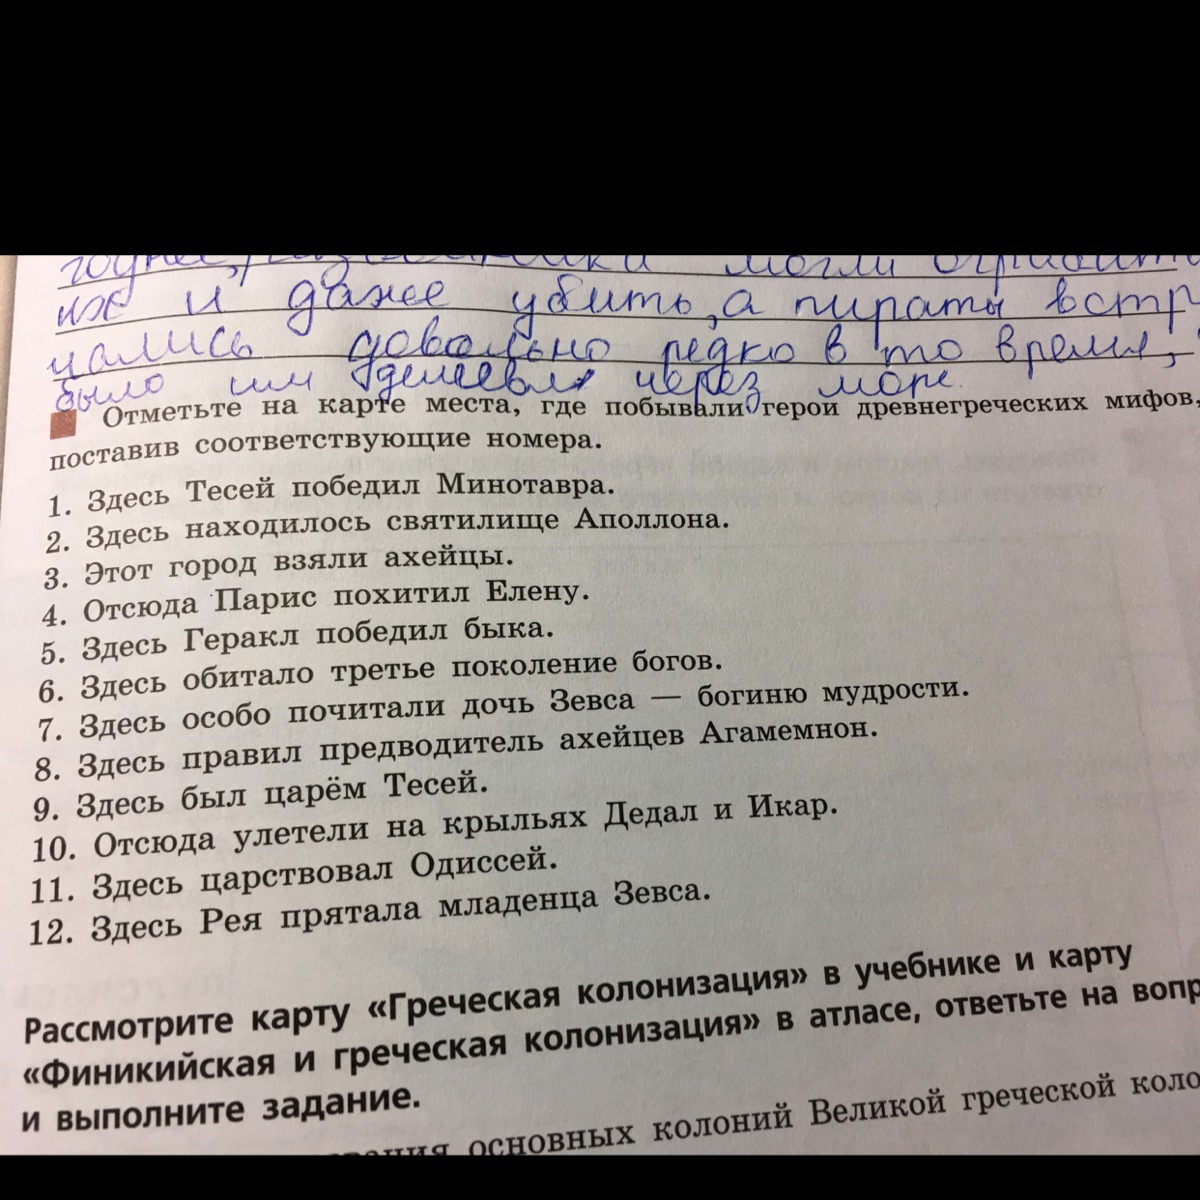 могли ограбить
их и даже убить, а пираты встр
чались довольно редко в то время,
было им дешевле через море.
Отметьте на карте места, где побывали герои древнегреческих мифов,
поставив соответствующие номера.
1. Здесь Тесей победил Минотавра.
2. Здесь находилось святилище Аполлона.
3. Этот город взяли ахейцы.
4. Отсюда Парис похитил Елену.
5. Здесь Геракл победил быка.
6. Здесь обитало третье поколение богов.
7. Здесь особо почитали дочь Зевса — богиню мудрости.
8. Здесь правил предводитель ахейцев Агамемнон.
9. Здесь был царём Тесей.
10. Отсюда улетели на крыльях Дедал и Икар.
11. Здесь царствовал Одиссей.
12. Здесь Рея прятала младенца Зевса.
Рассмотрите карту «Греческая колонизация» в учебнике и карту
«Финикийская и греческая колонизация» в атласе, ответьте на вопр
и выполните задание.
основных колоний Великой греческой коло